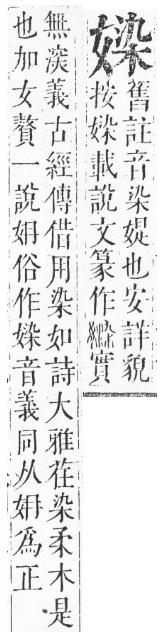 媣
舊註音染媞也安詳貌
按媣載說文篆作實
無深義古經傳借用染如詩大雅荏染柔木是
也加女贅一說姌俗作媣音義同从姌爲正